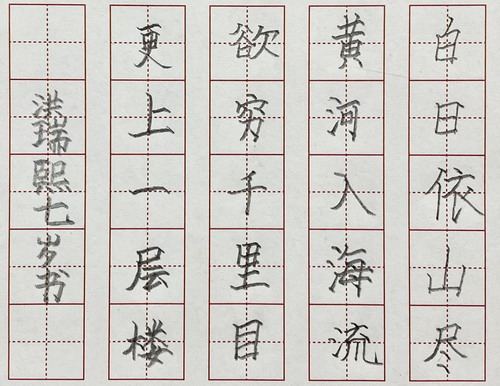 白日依山尽
黄河入海流
欲穷千里目
更上一层楼
洪瑞熙七岁书